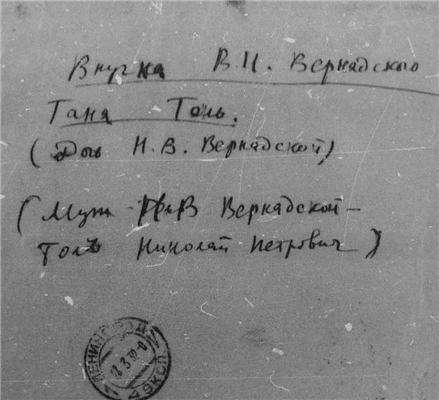 Внучка В.И. Вернадского
Таня Толь.
(Дочь Н.В. Вернадской)
(Муж Н.В Вернадской-
Толь Николай Петрович)
ЛЕНИНГРАД
49 ЭКСП.